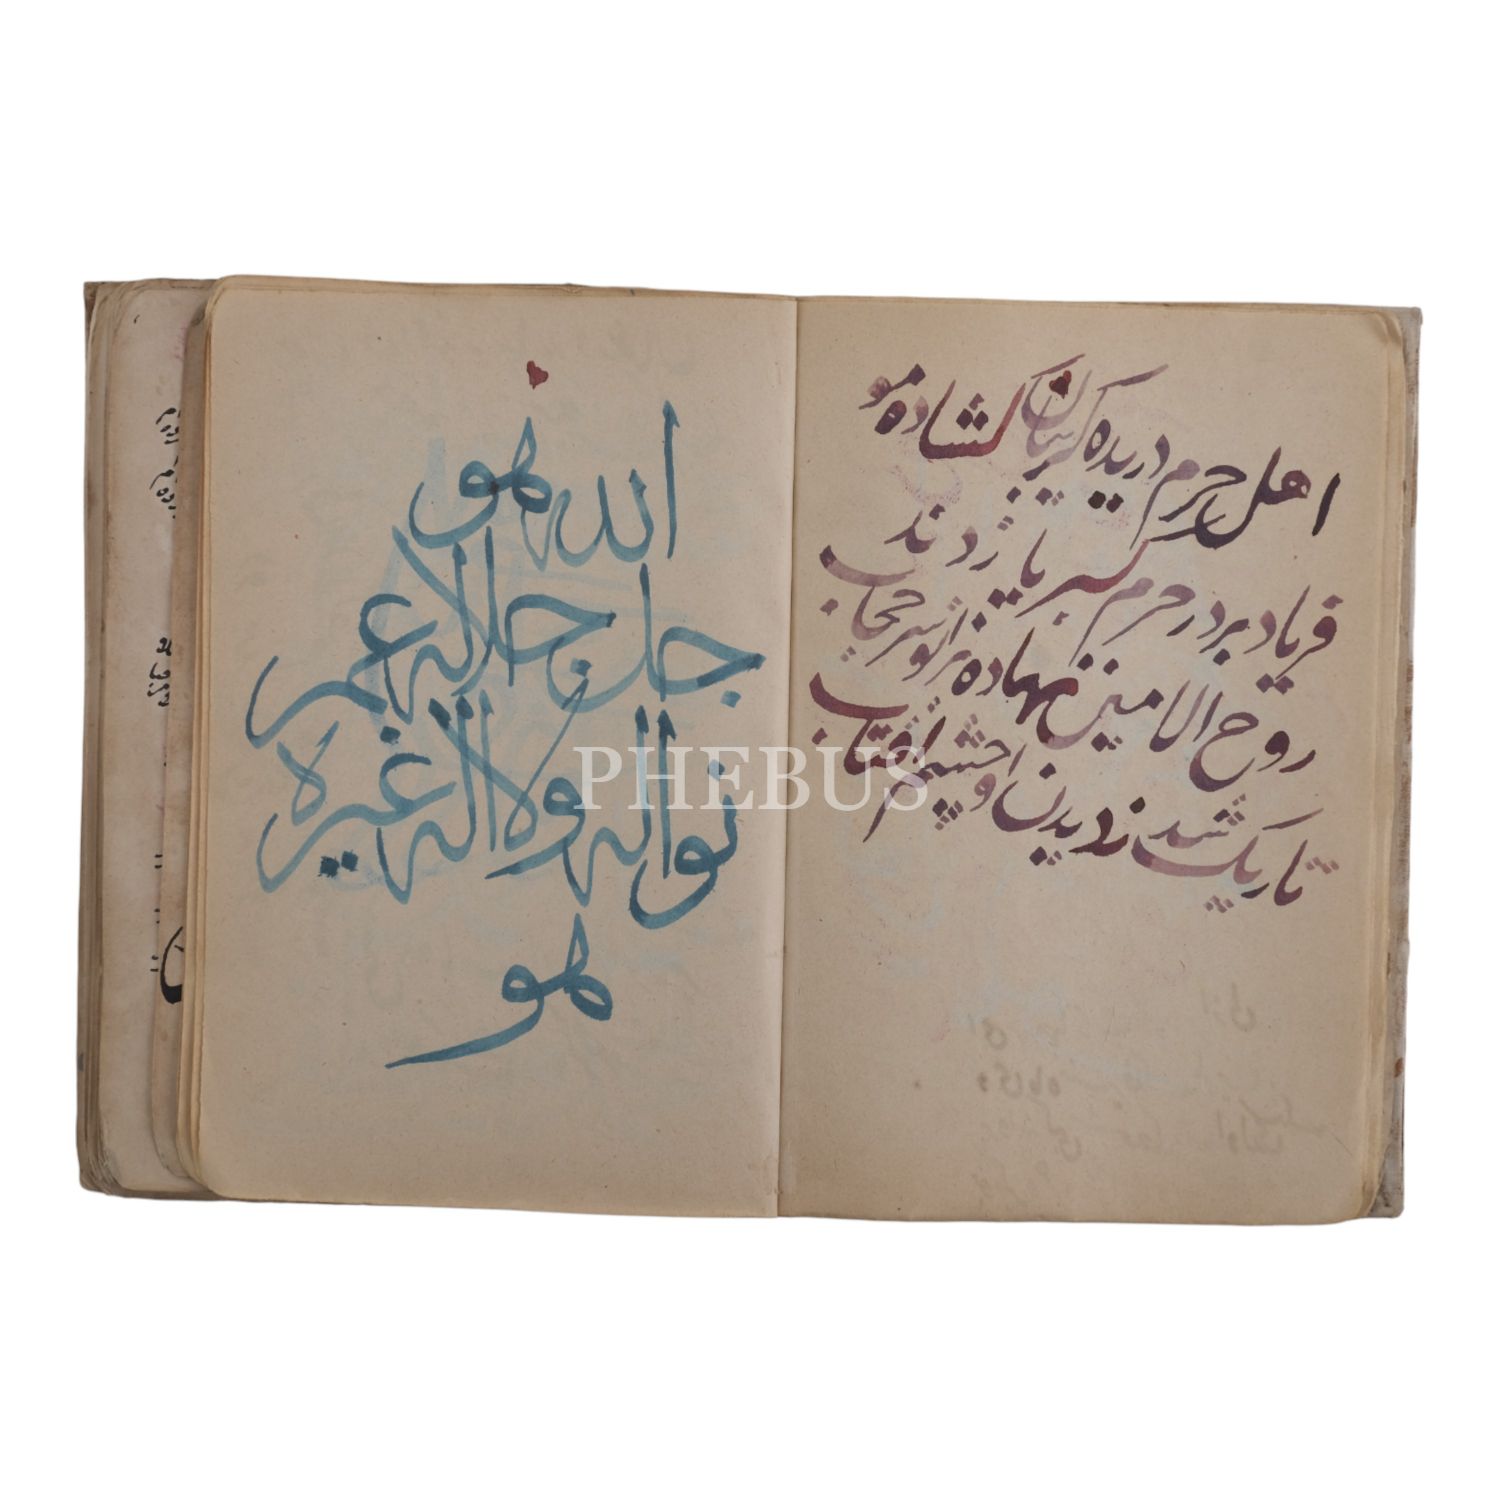 اهل حرم دریده گریبان گشاده مو
فریاد بر در حرم کبریا زدند
روح الامین نهاده بزانو سر حجاب
تاریک شد ز دیدن او چشم افتاب
الله هو
جل جلاله عم
نواله ولا اله غیره
هو
PHEBUS